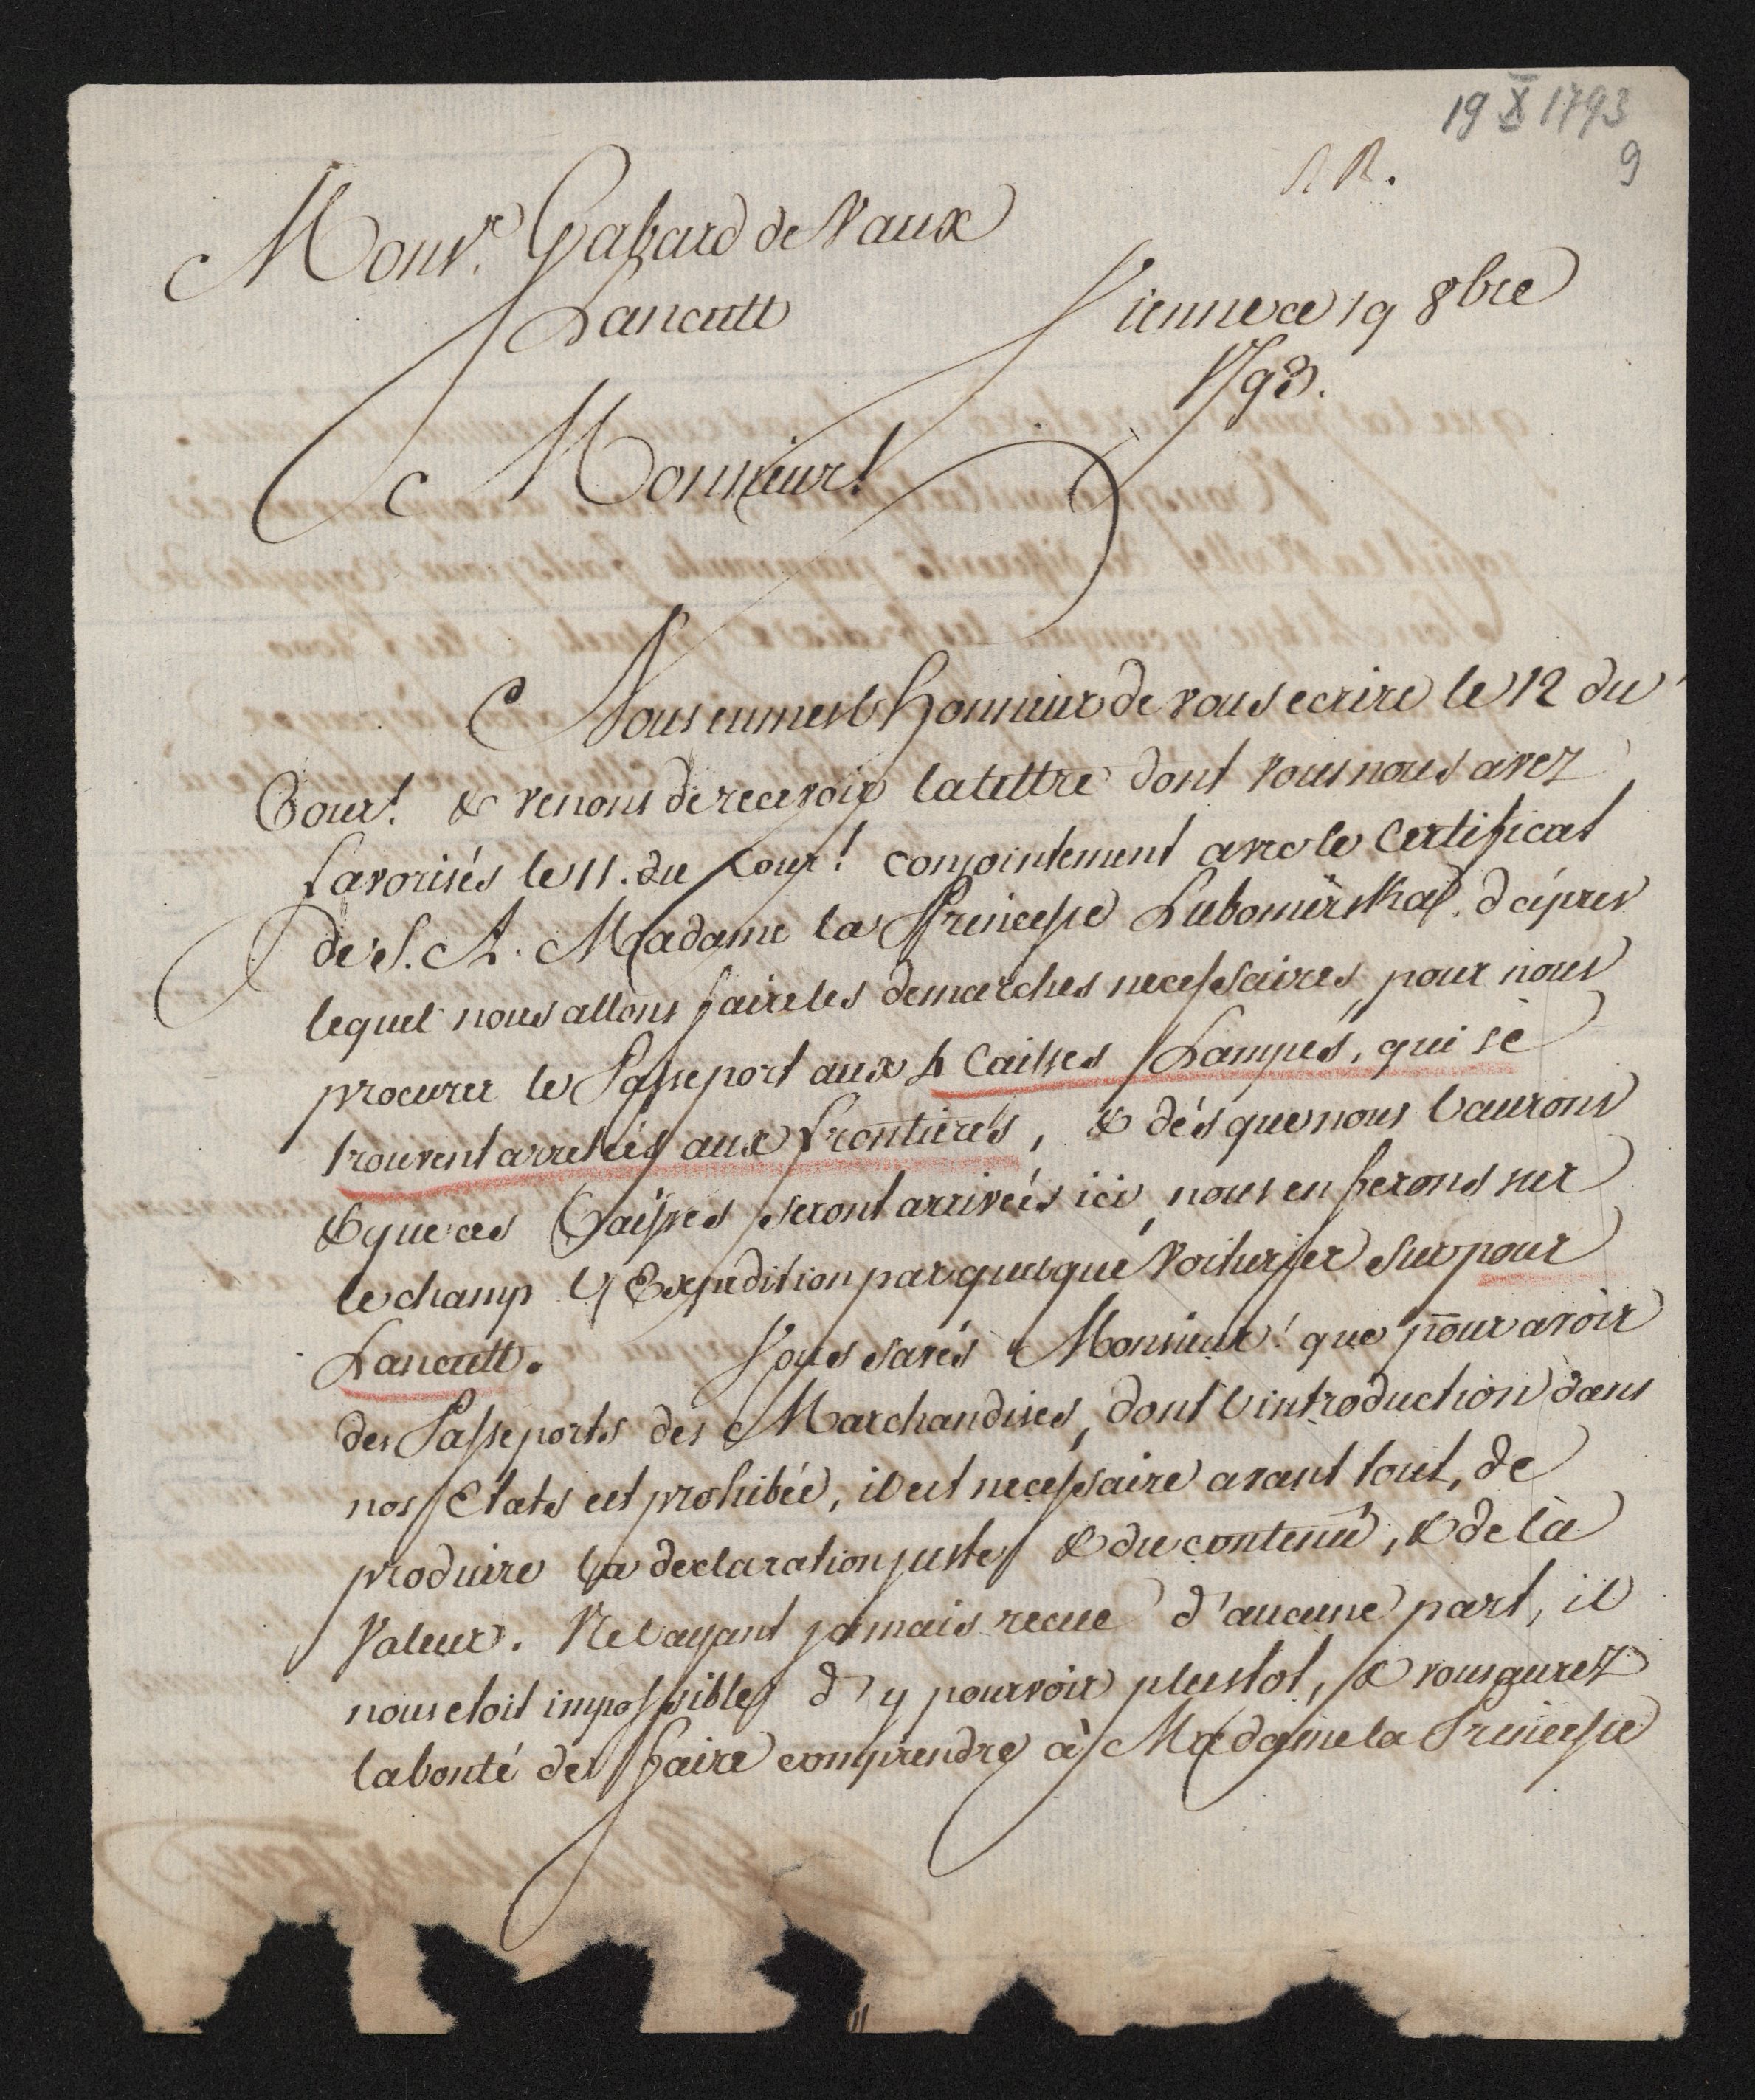 19 X 1793
9
R.
Monsr. Gabard de Vaux
Lancutt
Vienne ce 19 8bre
1793.
Monsieur!
Nous eumes l'honneur de vous ecrire le 12 du
Cour! & venons de recevoir la lettre dont vous nous avez
favorisés le 11. du Cour! conjointement avec le Certificat
de S. A. Madame la Princesse Lubomirska, d'après
lequel nous allons faire les demarches necessaires, pour nous
procurer le Passeport aux 4 Caisses Lampes, qui se
trouvent arretées aux frontieres, & dés que nous l'aurons
& que ces Caisses seront arrivées ici, nous en ferons sur
le champ l'Expedition par quelque Voiturier sur pour
Lancutt. Vous savés Monsieur! que pour avoir
des Passeports des Marchandises, dont l'introduction dans
nos Etats est prohibée, il est necessaire avant tout, de
produire la declaration juste & du contenu, & de la
Valeur. Ne l'ayant jamais recue d'aucune part, il
nous etoit impossible d'y pourvoir plustot, & vous aurez
la bonté de faire comprendre à Madame la Princesse